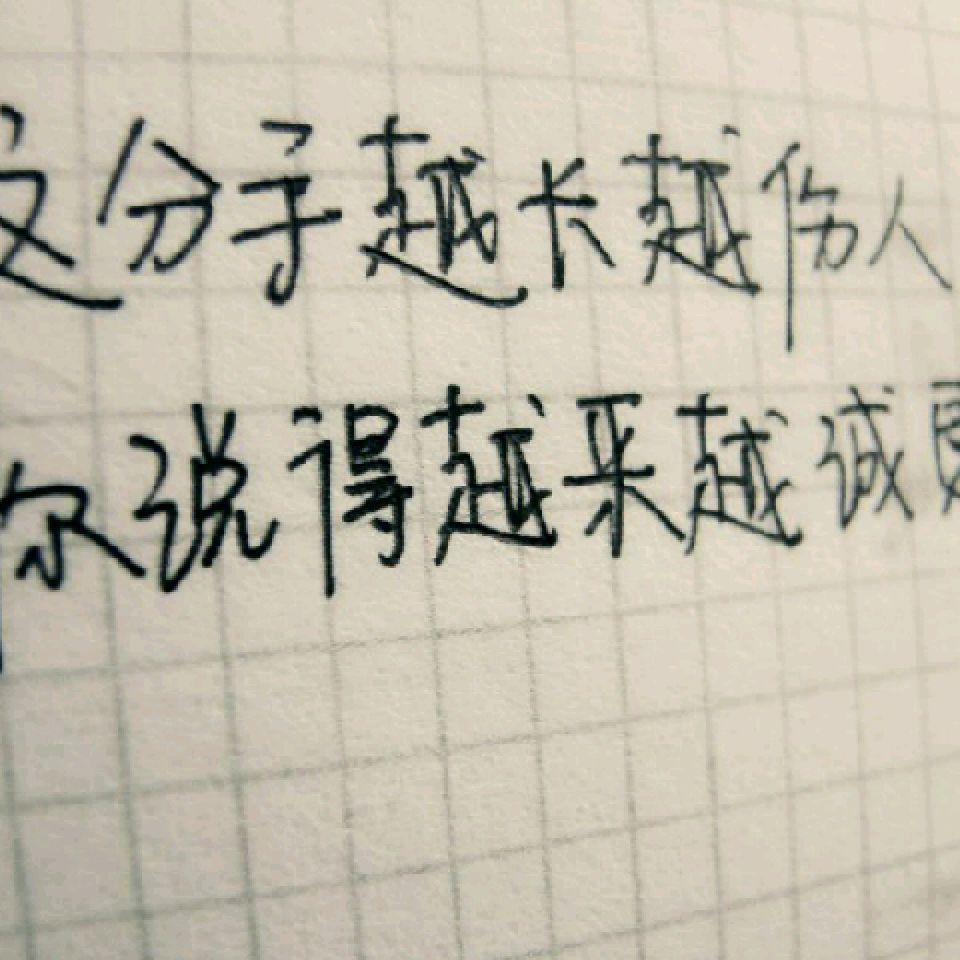 这分手越长越伤人
你说得越来越诚